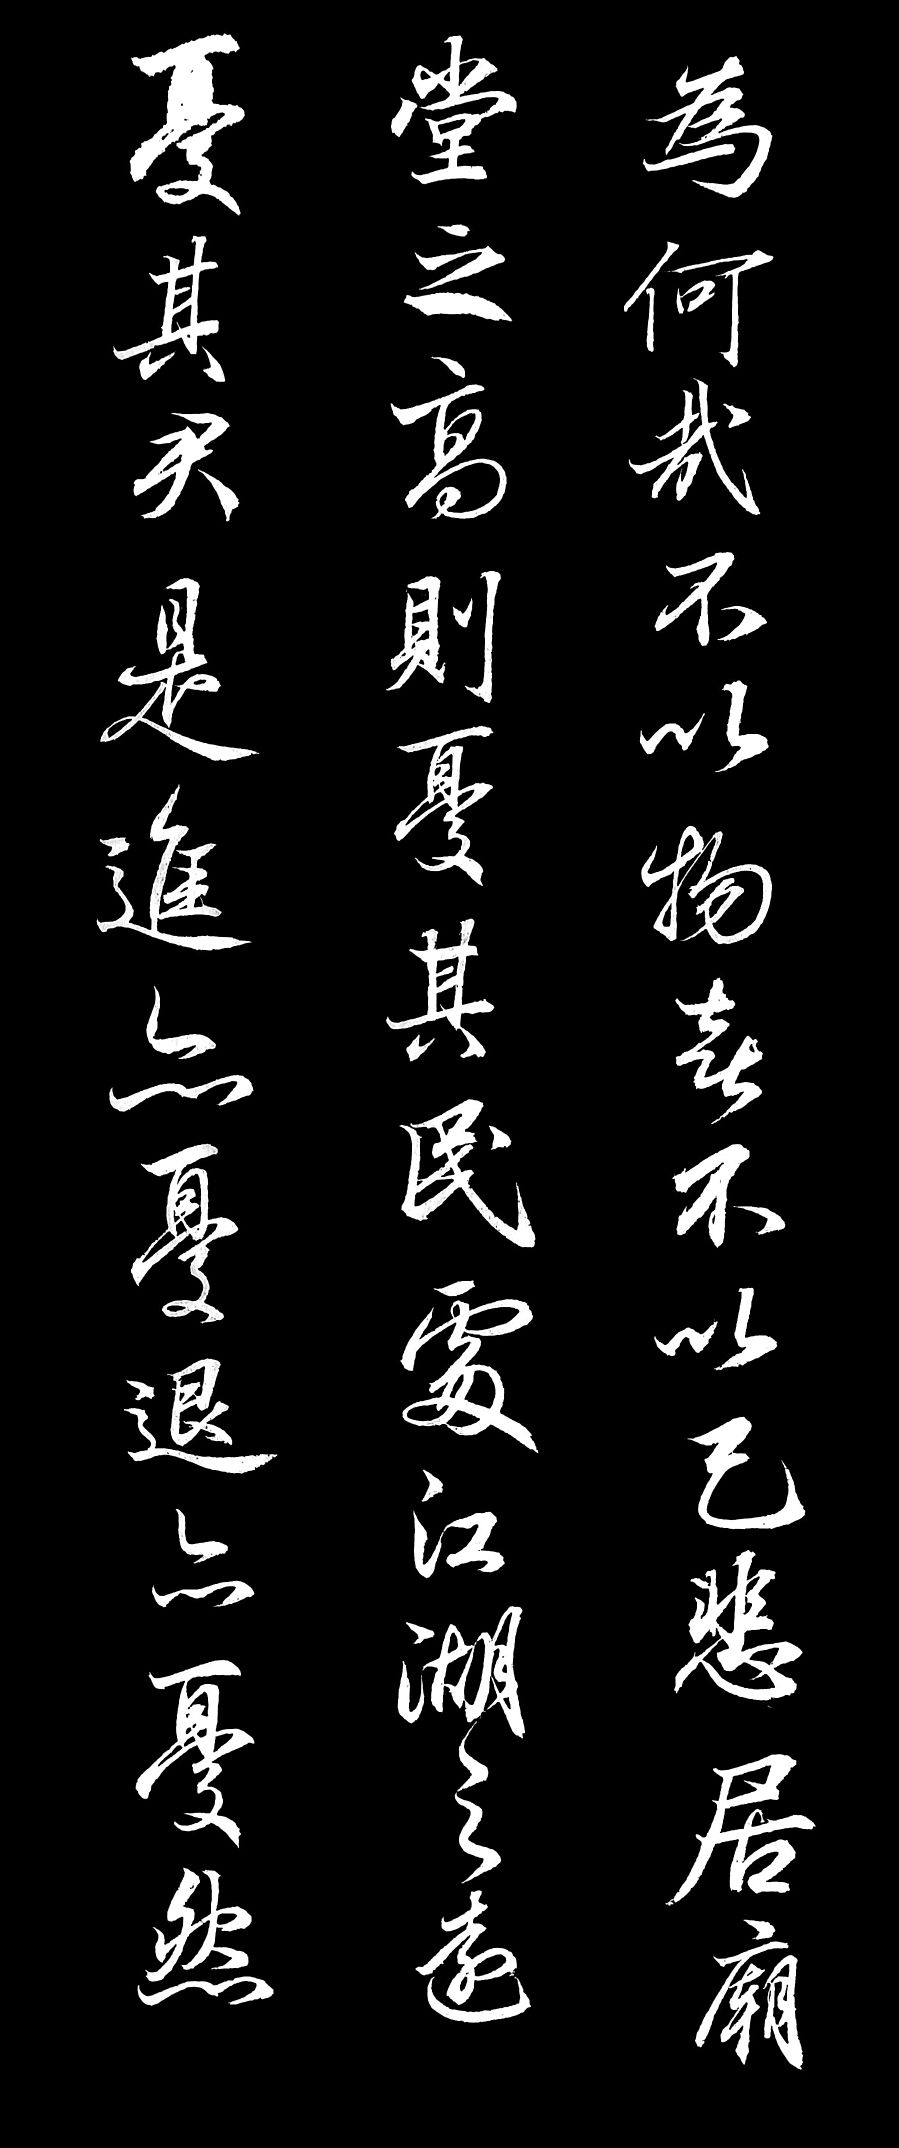 為何哉不以物喜不以己悲居廟
堂之高則憂其民處江湖之遠
憂其君是進亦憂退亦憂然